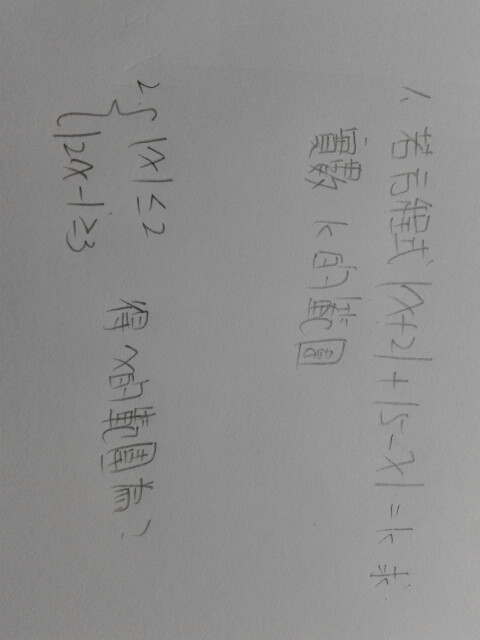 1、若方程式 |x+2| + |5-x| = k 求
實數 k 的範圍
2. { |x| ≤ 2
|2x-1| ≥ 3 得 x的範圍為?